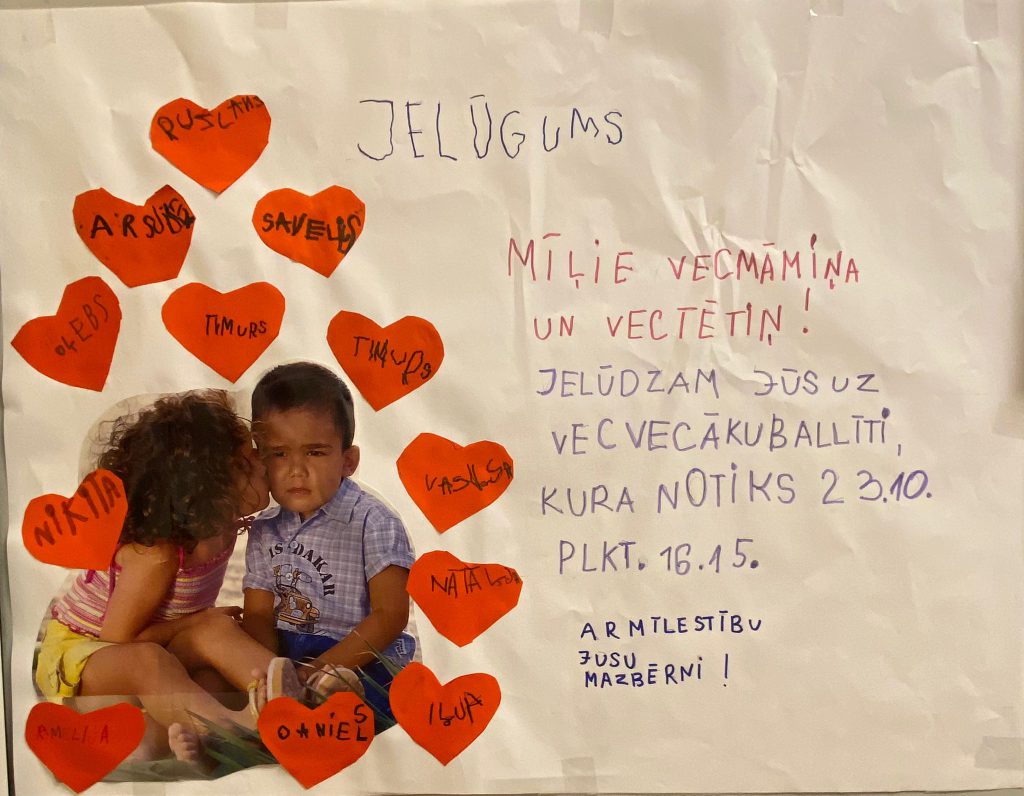 JELŪGUMS
RUSLANS
SAVELIJS
GĻEBS
TIMURS
TIMURS
VASILISA
NIKITA
IS DAKAR
DANIELS
IĻJA
MĪĻIE VECMĀMIŅA
UN VECTĒTIŅ!
JELŪDZAM JŪS UZ
VECVECĀKU BALLĪTI,
KURA NOTIKS 23.10.
PLKT. 16.15.
AR MĪLESTĪBU
JŪSU
MAZBĒRNI!